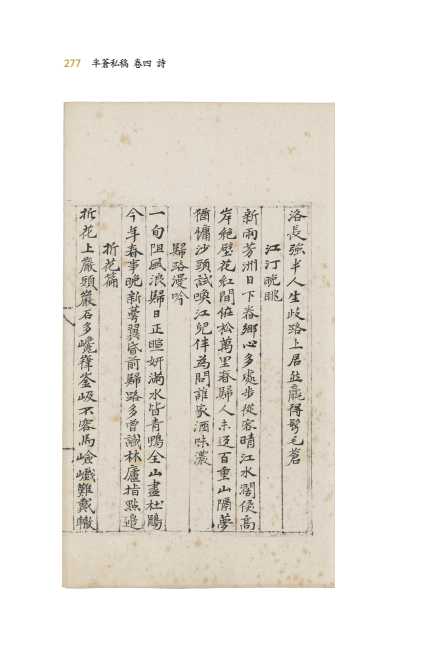 277 半蒼私稿 卷四 詩
洛長強半人生歧路上居然羸得鬢毛蒼
江汀晩眺
新雨芳洲日下春鄉心多處步從容晴江水闊侯高
岸絶壁花紅間依松萬里春歸人未返百重山隔夢
猶慵沙頭試喚江兒伴為問誰家酒味濃
歸路漫吟
一旬阻風浪歸日正暄妍滿水皆青鴨全山盡杜鵑
今年春事晩新夢翼昏前歸路多曾識林廬指點邊
折花篇
折花上巖頭巖石多巉 峚岌不容馬嶮巇難戴轍